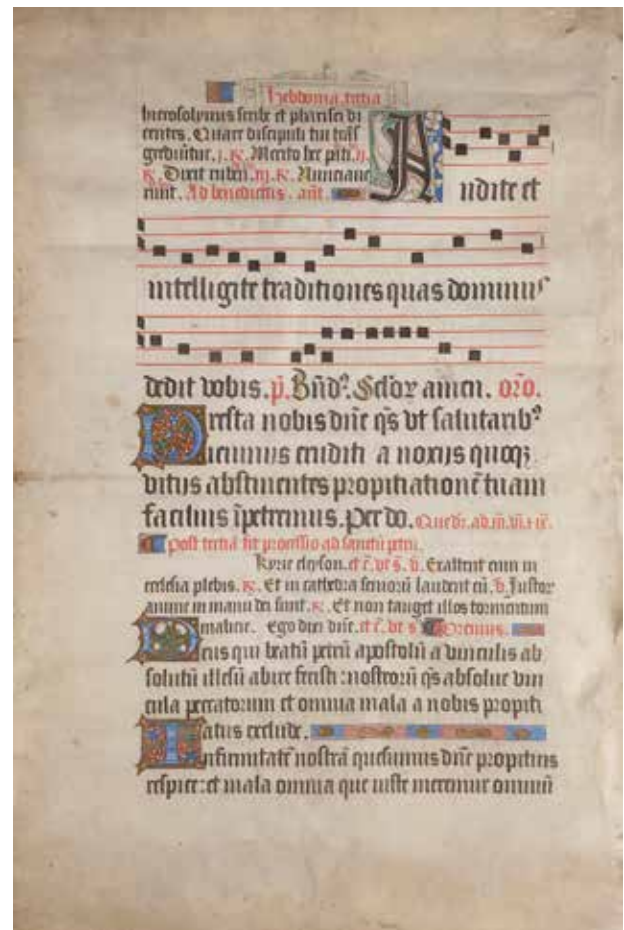 Hebdoma. tertia
hierosolymis scribe et pharisei di
centes. Quare discipuli tui trās
grediūtur. j. ꝶ. Merito hec pati. ij.
ꝶ. Dixit ruben. iij. ꝶ. Nunciaue
runt. Ad benedictus. añt.
Audite et
intelligite traditiones quas dominus
dedit vobis. p̄. Bñdꝰ. Sclor̄ amen. or̄o.
Presta nobis dñe q̄s vt salutaribꝰ
ieiuniis eruditi a noxijs quoqꝫ
vitijs abstinentes propitiationē tuam
facilius īpetremus. Per do.
Post tertiā fit processio ad sanctū petrū.
Kyrie eleyson. et c̄. vt s̄. v̄. Exaltent eum in
ecclesia plebis. ꝶ. Et in cathedra seniorū laudent eū. v̄. Justor
anime in manu dei sunt. ꝶ. Et non tanget illos tormentum
malicie. Ego dixi dñe. et c̄. vt s̄. Oremus.
Deus qui beatū petrū apostolū a vinculis ab
solutū illesū abire fecisti: nostrorū q̄s absolue vin
cula peccatorum et omnia mala a nobis propiti
atus exclude.
Infirmitatē nostrā quesumus dñe propitius
respice: et mala omnia que iuste meremur omniū